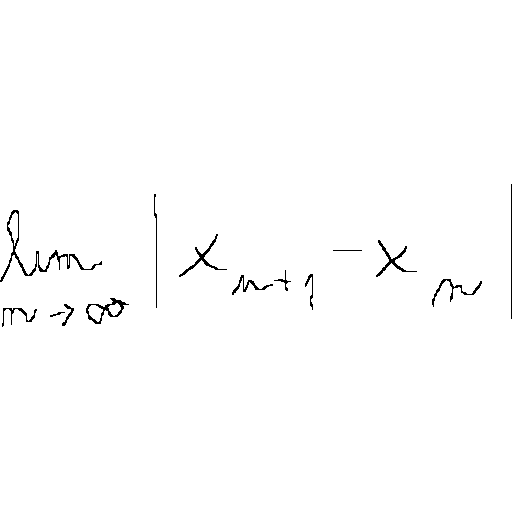 \lim_{n \to \infty} | x_{n+1} - x_n |